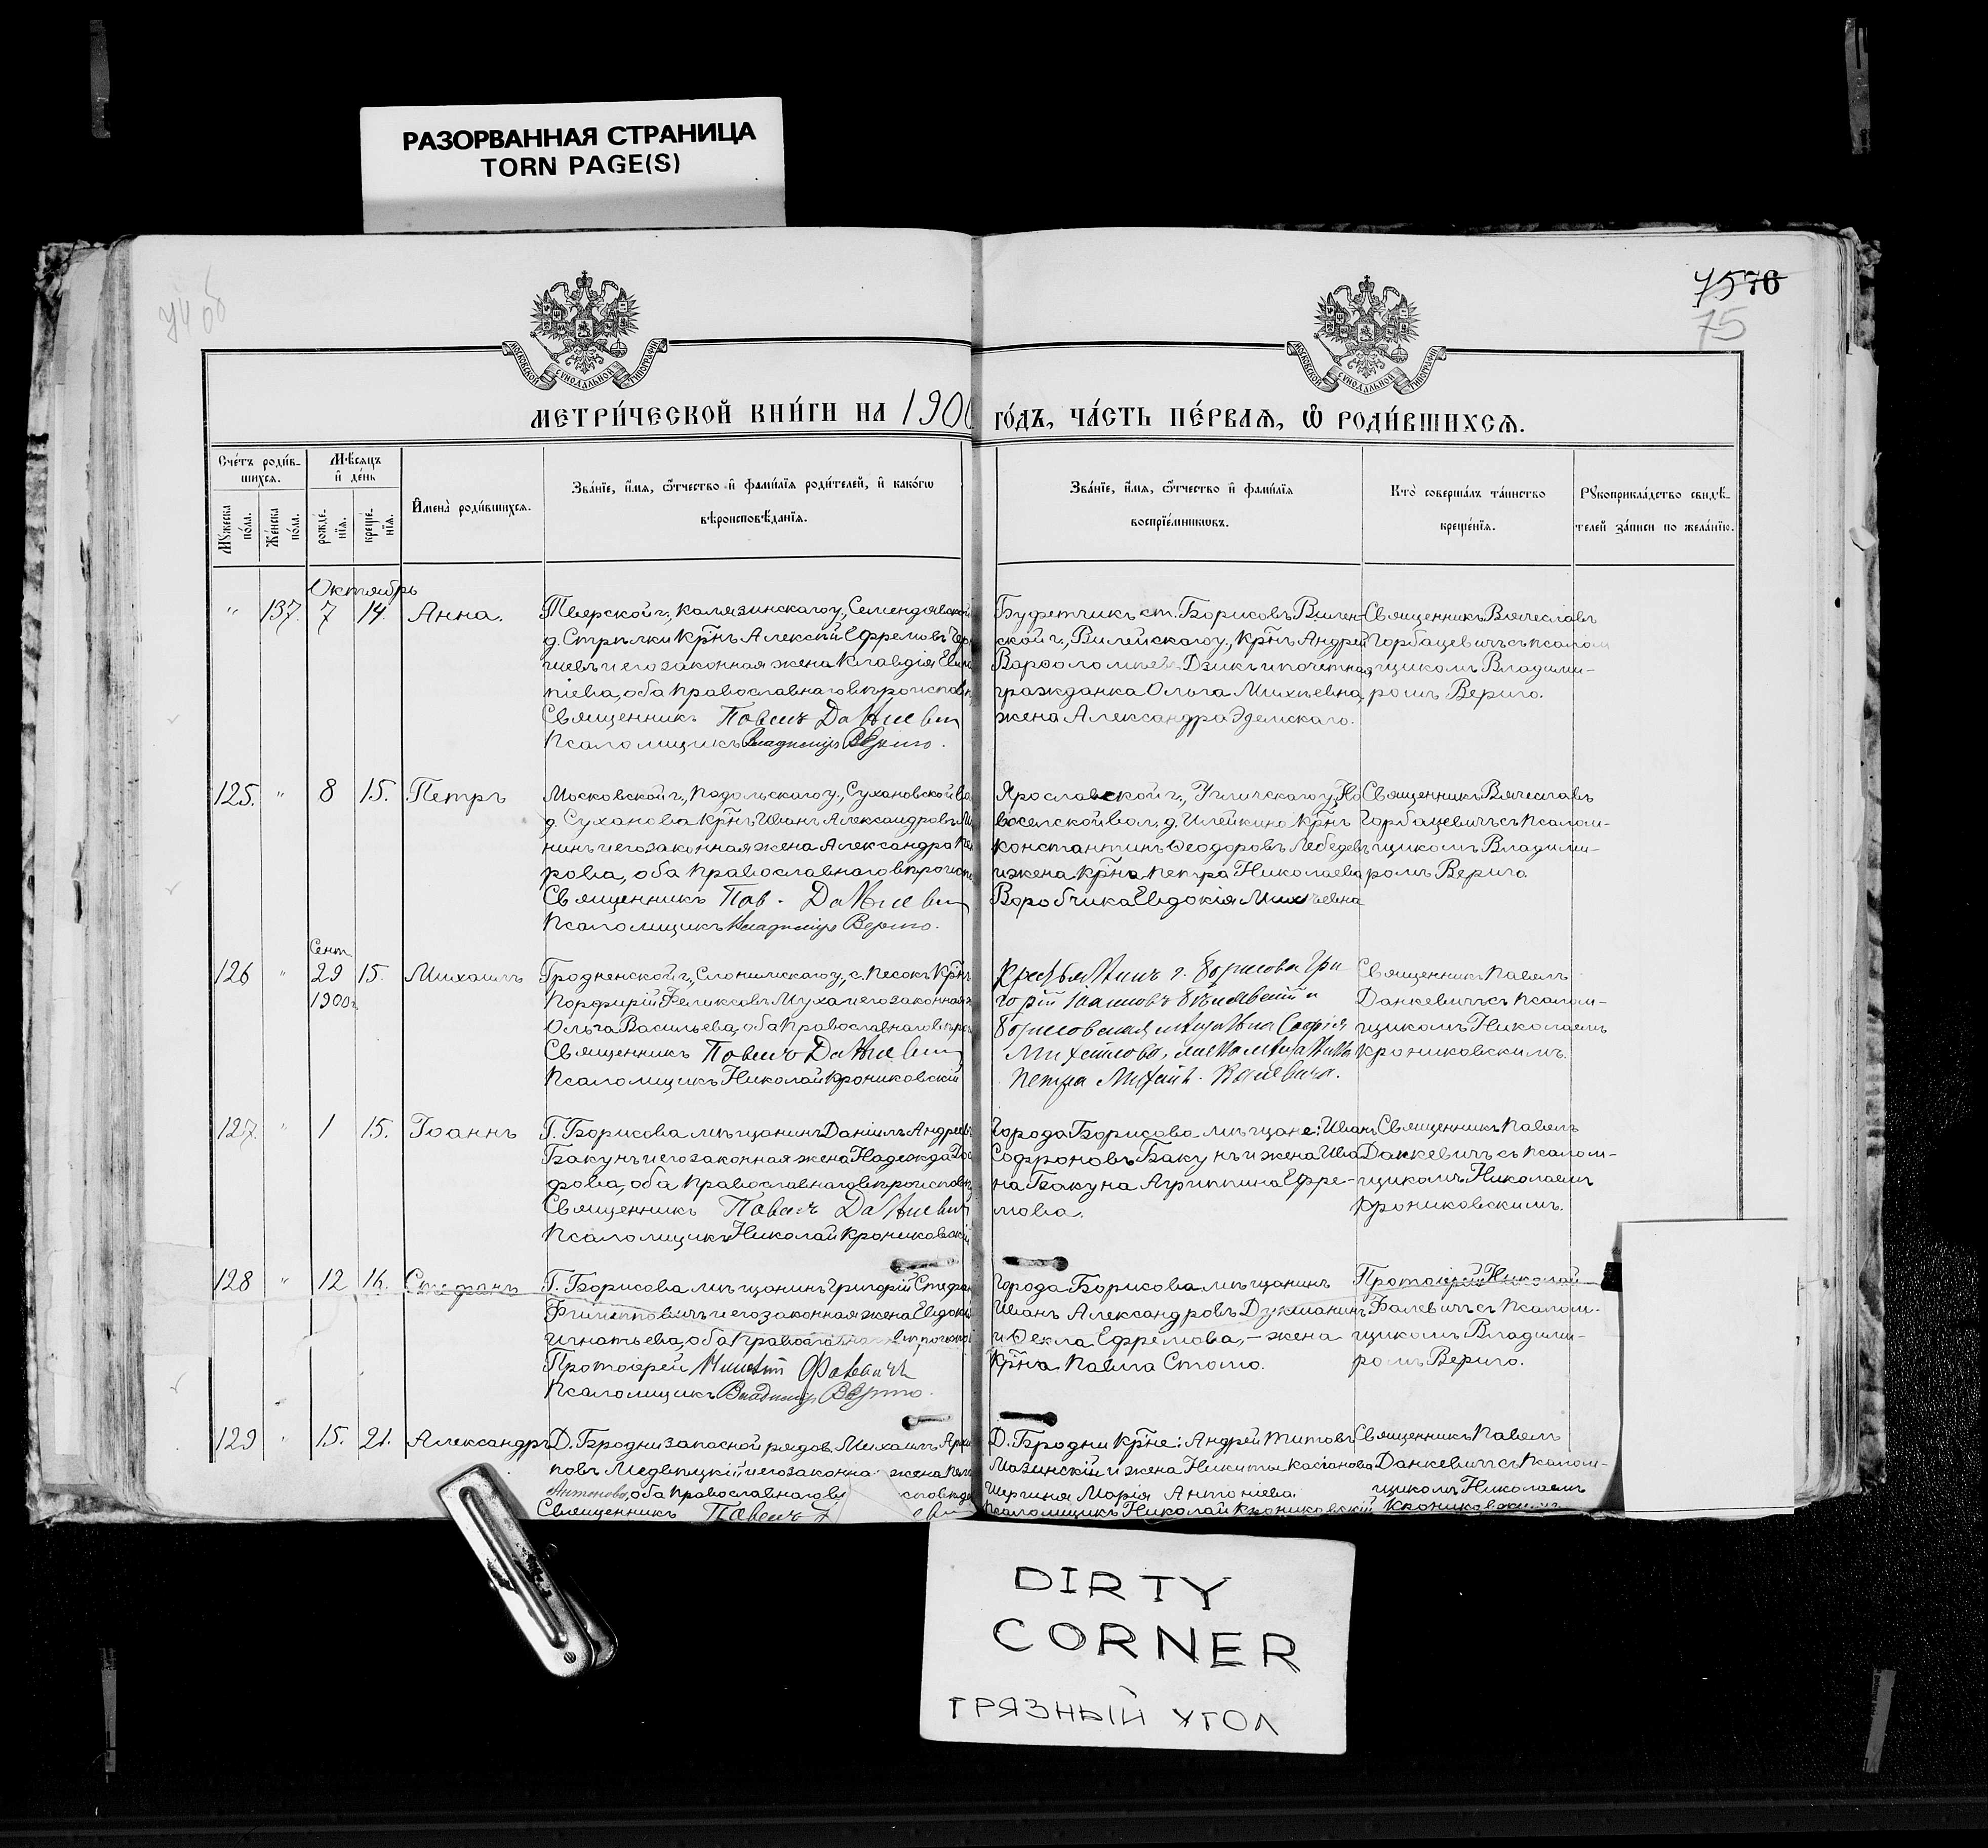 РАЗОРВАННАЯ СТРАНИЦА
TORN PAGE(S)
74 об
7576
75
МОСКОВСКОЙ СУНОДАЛЬНОЙ ТИПОГРАФІИ
МОСКОВСКОЙ СУНОДАЛЬНОЙ ТИПОГРАФІИ
МЕТРИ́ЧЕСКОЙ КНИ́ГИ НА 1900 ГО́ДЪ, ЧА́СТЬ ПЕ́РВАѦ, Ѽ РОДИ́ВШИХСѦ.
Сче́тъ роди́в-
шихся.
Мѣ́сяцъ
и҆ де́нь
Мꙋ́жеска
по́ла.
Же́нска
по́ла.
рожде́-
нїя.
креще́-
нїя.
И҆мена̀ роди́вшихся.
Зва́нїе, и҆́мя, ѻ҆́тчество и҆ фами́лїя роди́телей, и҆ како́гѡ
вѣроисповѣ́данїя.
Зва́нїе, и҆́мя, ѻ҆́тчество и҆ фами́лїя
воспрїе́мникѡвъ.
Кто̀ соверша́лъ та́инство
креще́нїя.
Рꙋкоприкла́дство свидѣ́-
телей за́писи по жела́нїю.
Октябрь
" 137. 7 14. Анна.
Тверской г., Калязинскаго у., Семендяевской
д. Стрѣлки Кр̄нъ Алексѣй Ефремовъ
и его законная жена Клавдія
піева, оба православнаго вѣроисповѣд
Священникъ Павелъ Данкевичъ
Псаломщикъ Владиміръ Верiго.
Буфетчикъ ст. Борисовъ Вилен-
ской г., Вилейскаго у., Кр̄нъ Андрей
Варѳоломѣевъ Дзикъ и почетная
гражданка Ольга Михѣевна,
жена Александра Эдемскаго.
Священникъ Вячеславъ
Горбацевичъ съ псалом
щикомъ Владимі-
ромъ Вериго.
125. " 8 15. Петръ
Московской г., Подольскаго у., Сухановской во
д. Суханова Кр̄нъ Иванъ Александровъ
нинъ и его законная жена Александра
рова, оба православнаго вѣроиспо
Священникъ Пав. Данкевичъ
Псаломщикъ Владиміръ Вериго.
Ярославской г., Угличскаго у., Но
воселской вол. д. Илейкино Кр̄нъ
Константинъ Ѳеодоровъ Лебедевъ
и жена Кр̄на Петра Николаева
Воробчика Евдокія Михѣевна
Священникъ Вячеславъ
Горбацевичъ съ псалом-
щикомъ Владимі-
ромъ Вериго
Сент.
126 " 29 15. Михаилъ
1900 г.
Гродненской г., Слонимскаго у., с. Песокъ Кр̄нъ
Порфирій Феликсовъ Муха и его законная
Ольга Васильева, оба православнаго вѣро
Священникъ Павелъ Данкевичъ
Псаломщикъ Николай Крониковскій
Крестьянинъ г. Борисова Гри
горій Іоанновъ и
Борисовская мѣщанка Софія
Михайлова, жена мѣщанина
Петра Михайл.
Священникъ Павелъ
Данкевичъ съ псалом-
щикомъ Николаемъ
Крониковскимъ.
127. " 1 15. Іоаннъ
Г. Борисова мѣщанинъ Даніилъ Андреевъ
Бакунъ и его законная жена Надежда
фова, оба православнаго вѣроисповѣ
Священникъ Павелъ Данкевичъ
Псаломщикъ Николай Крониковскій
Города Борисова мѣщане: Иванъ
Софроновъ Бакунъ и жена Ива
на Бакуна Агриппина Ефре-
мова.
Священникъ Павелъ
Данкевичъ съ псалом-
щикомъ Николаемъ
Крониковскимъ.
128 " 12 16. Стефанъ
Г. Борисова мѣщанинъ Григорій Стефан
Филипповичъ и его законная жена Евдокія
Игнатьева, оба православнаго вѣроиспов
Протоіерей
Псаломщикъ Владиміръ Вериго.
Города Борисова мѣщанинъ
Иванъ Александровъ Дукшанинъ
и Ѳекла Ефремова, – жена
Кр̄на Павла Стомо.
Протоіерей Николай
съ псалом-
щикомъ Владимі-
ромъ Вериго.
129 " 15. 21. Александръ
Д. Бродни запасной рядов. Михаилъ Архи
повъ Медвѣцкій и его законна жена
Антонова, оба православнаго вѣ споведа
Священникъ Павелъ
Д. Бродни Кр̄не: Андрей Титовъ
Мазинскій и жена Никиты Касіанова
Шергина Марія Антоніева.
Псаломщикъ Николай Крониковскій
Священникъ Павелъ
Данкевичъ съ псалом-
щикомъ Николаемъ
Крониковскимъ
DIRTY
CORNER
ГРЯЗНЫЙ УГОЛ